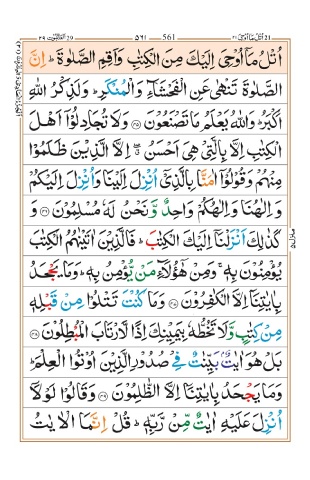 العنكبوت ٢٩ ٥٦١ 561 اتل مآ اوحی ٢١
اُتْلُ مَاۤ اُوْحِیَ اِلَیْكَ مِنَ الْكِتٰبِ وَاَقِمِ الصَّلٰوةَ ؕ اِنَّ
الصَّلٰوةَ تَنْهٰی عَنِ الْفَحْشَآءِ وَالْمُنْكَرِ ؕ وَلَذِكْرُ اللّٰهِ
اَكْبَرُ ؕ وَاللّٰهُ یَعْلَمُ مَا تَصْنَعُوْنَ ﴿۴۵﴾ وَلَا تُجَادِلُوْۤا اَهْلَ
الْكِتٰبِ اِلَّا بِالَّتِیْ هِیَ اَحْسَنُ ۖ اِلَّا الَّذِیْنَ ظَلَمُوْا
مِنْهُمْ وَقُوْلُوْۤا اٰمَنَّا بِالَّذِیْۤ اُنْزِلَ اِلَیْنَا وَاُنْزِلَ اِلَیْكُمْ
وَاِلٰهُنَا وَاِلٰهُكُمْ وَاحِدٌ وَّنَحْنُ لَهٗ مُسْلِمُوْنَ ﴿۴۶﴾ وَ
كَذٰلِكَ اَنْزَلْنَاۤ اِلَیْكَ الْكِتٰبَ ؕ فَالَّذِیْنَ اٰتَیْنٰهُمُ الْكِتٰبَ
یُؤْمِنُوْنَ بِهٖ ۚ وَمِنْ هٰۤؤُلَآءِ مَنْ یُّؤْمِنُ بِهٖ ؕ وَمَا یَجْحَدُ
بِاٰیٰتِنَاۤ اِلَّا الْكٰفِرُوْنَ ﴿۴۷﴾ وَمَا كُنْتَ تَتْلُوْا مِنْ قَبْلِهٖ
مِنْ كِتٰبٍ وَّلَا تَخُطُّهٗ بِیَمِیْنِكَ اِذًا لَّارْتَابَ الْمُبْطِلُوْنَ ﴿۴۸﴾
بَلْ هُوَ اٰیٰتٌۢ بَیِّنٰتٌ فِیْ صُدُوْرِ الَّذِیْنَ اُوْتُوا الْعِلْمَ ؕ
وَمَا یَجْحَدُ بِاٰیٰتِنَاۤ اِلَّا الظّٰلِمُوْنَ ﴿۴۹﴾ وَقَالُوْا لَوْلَاۤ
اُنْزِلَ عَلَیْهِ اٰیٰتٌ مِّنْ رَّبِّهٖ ؕ قُلْ اِنَّمَا الْاٰیٰتُ